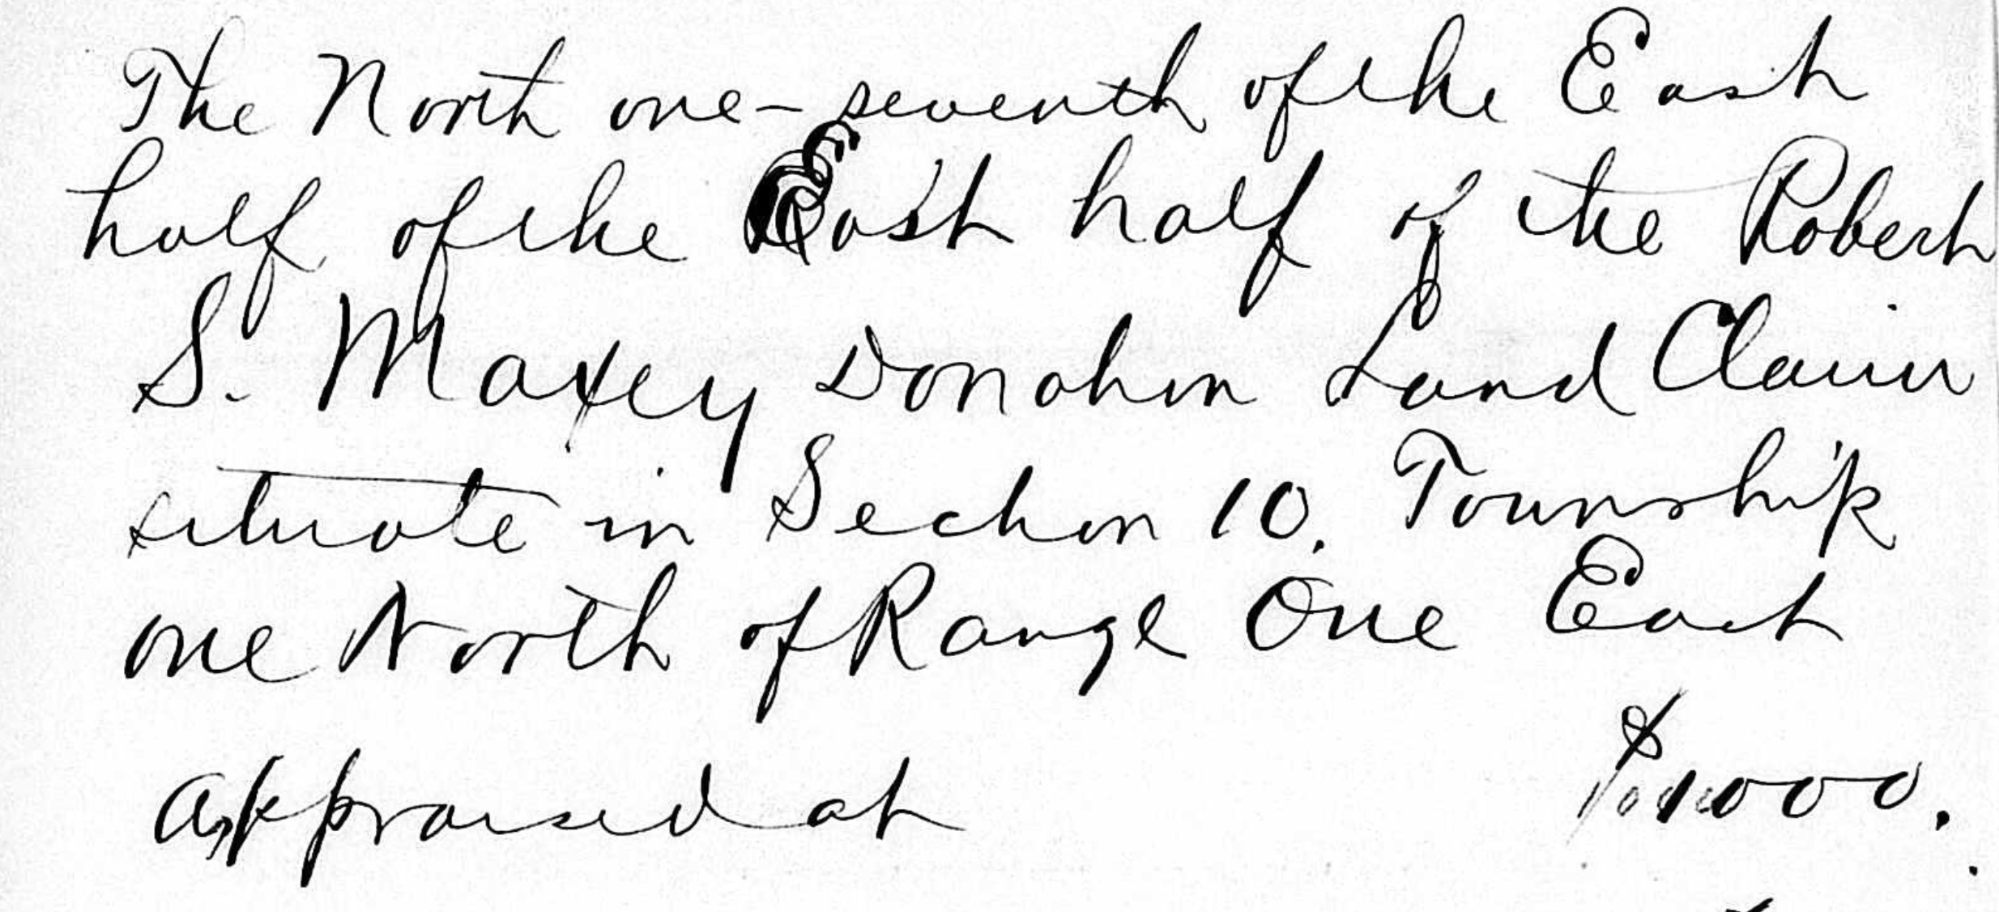 The North one-seventh of the East
half of the East half of the Robert
S. Maxey Donation Land Claim
situate in Section 10, Township
one North of Range One East
Appraised at $1000.